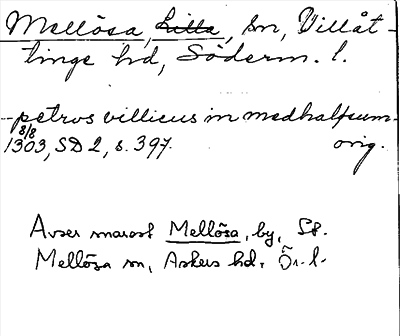 Mellösa, Lilla, sn, Villåt-
tinge hd, Söderm. l.
--petrus villicus in medhalfsum-
8/8
1303, SD 2, s. 397. orig.
Avser snarast Mellösa, by, St.
Mellösa sn, Askers hd, Ör. l.